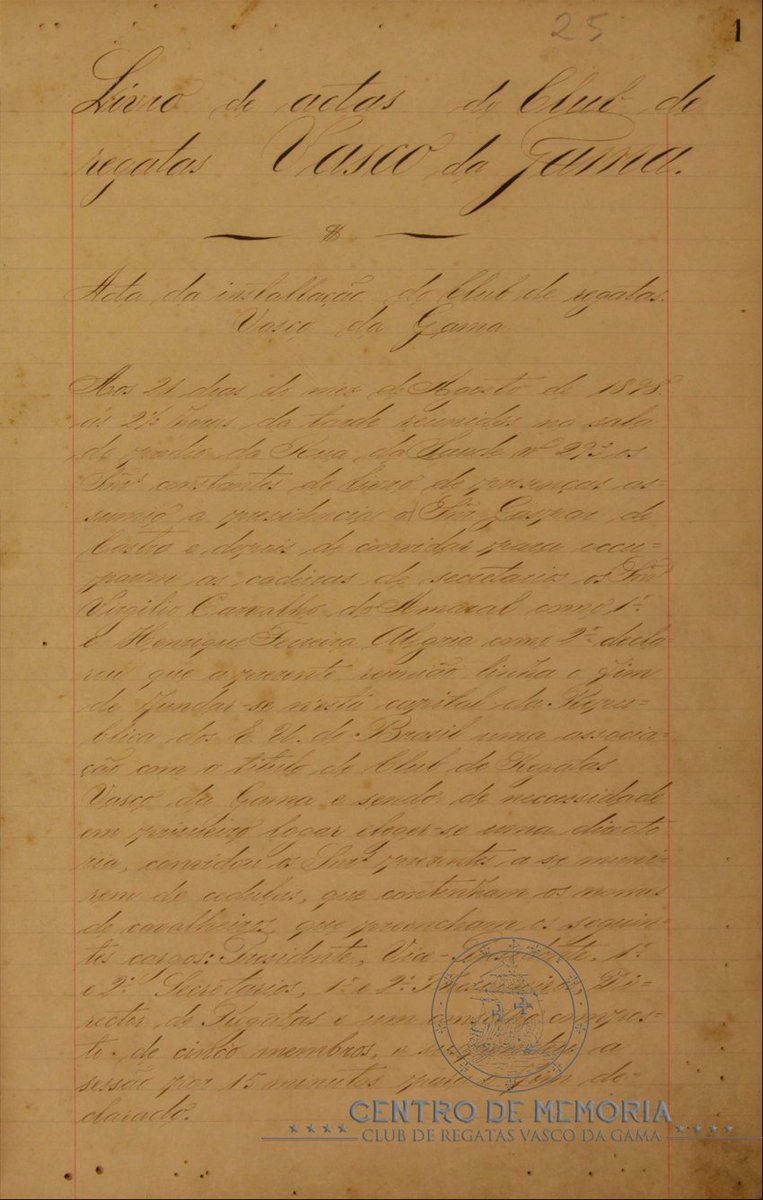 25
1
Livro de actas do Club de
regatas Vasco da Gama.
Acta da installação do Club de regatas
Vasco da Gama
Aos 21 dias do mez de Agosto de 1898
ás 2½ horas da tarde reunidos na sala
do predio da Rua da Saude nº 293 os
Snrs constantes do livro de presenças as-
sumio a presidencia o Snr Gaspar de
Castro e depois de convidar para occu-
parem as cadeiras de secretarios os Snrs
Virgilio Carvalho do Amaral como 1º
e Henrique Ferreira Alegria como 2º decla-
rou que a presente reunião tinha o fim
de fundar-se nesta capital da Repu-
blica dos E. U. do Brasil uma associa-
ção com o titulo de Club de Regatas
Vasco da Gama e sendo de necessidade
em primeiro logar eleger-se uma directo
ria, convidou os Snrs presentes a se muni-
rem de cedulas, que contenham os nomes
de cavalheiros que preencham os seguin-
tes cargos: Presidente, Vice-Presidente, 1º
e 2º Secretarios, 1º e 2º Thesoureiros, Di-
rector de Regatas e um conselho compos-
to de cinco membros, e suspendeu a
sessão por 15 minutos para o fim de-
clarado.
CENTRO DE MEMÓRIA
CLUB DE REGATAS VASCO DA GAMA